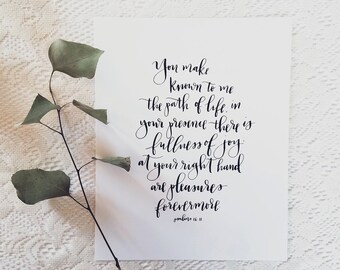 You make
known to me
the path of life, in
your presence there is
fullness of joy
at your right hand
are pleasures
forevermore
psalms 16:11